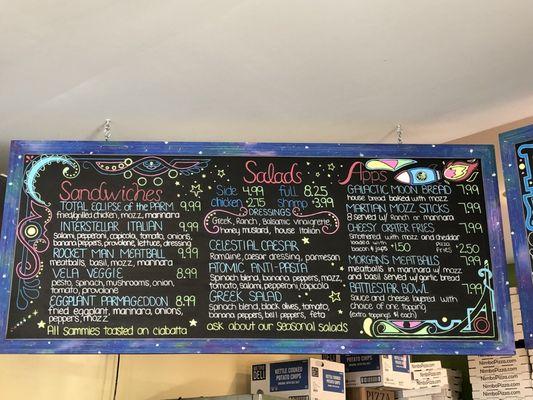 Sandwiches
TOTAL ECLIPSE of the PARM 9.99
fried/grilled chicken, mozz, marinara
INTERSTELLAR ITALIAN 9.99
Salami, pepperoni, capicola, tomato, onions,
banana peppers, provalone, lettuce, dressing
ROCKET MAN MEATBALL 9.99
meatballs, basil, mozz, marinara
VELA VEGGIE 8.99
pesto, spinach, mushrooms, onion,
tomato, provalone
EGGPLANT PARMAGEDDON 8.99
fried eggplant, marinara, onions,
peppers, mozz
All Sammies toasted on ciabatta
Salads
Side 4.99 Full 8.25
chicken 2.75 shrimp 3.99
DRESSINGS
Greek, Ranch, Balsamic vinaigrette,
Honey mustard, house Italian
CELESTIAL CAESAR
Romaine, caesar dressing, parmesan
ATOMIC ANTI-PASTA
Spinach blend, banana peppers, mozz,
tomato, salami, pepperoni, capicola
GREEK SALAD
Spinach blend, black olives, tomato,
banana peppers, bell peppers, feta
ask about our seasonal salads
Apps
GALACTIC MOON BREAD 7.99
house bread baked with mozz
MARTIAN MOZZ STICKS 7.99
8 served w/ Ranch or marinara
CHEESY CRATER FRIES 7.99
smothered with mozz and cheddar
loaded with bacon & +1.50 pizza fries +2.50
MORGANS MEATBALLS 7.99
meatballs in marinara w/ mozz
and basil served w/ garlic bread
BATTLESTAR BOWL 7.99
Sauce and cheese layered with
choice of one topping
(extra toppings $1 each)
DELI
KETTLE COOKED
POTATO CHIPS
KETTLE COOKED
POTATO CHIPS
PIZZA
NimboPizza.com
NimboPizza.com
NimboPizza.com
NimboPizza.com